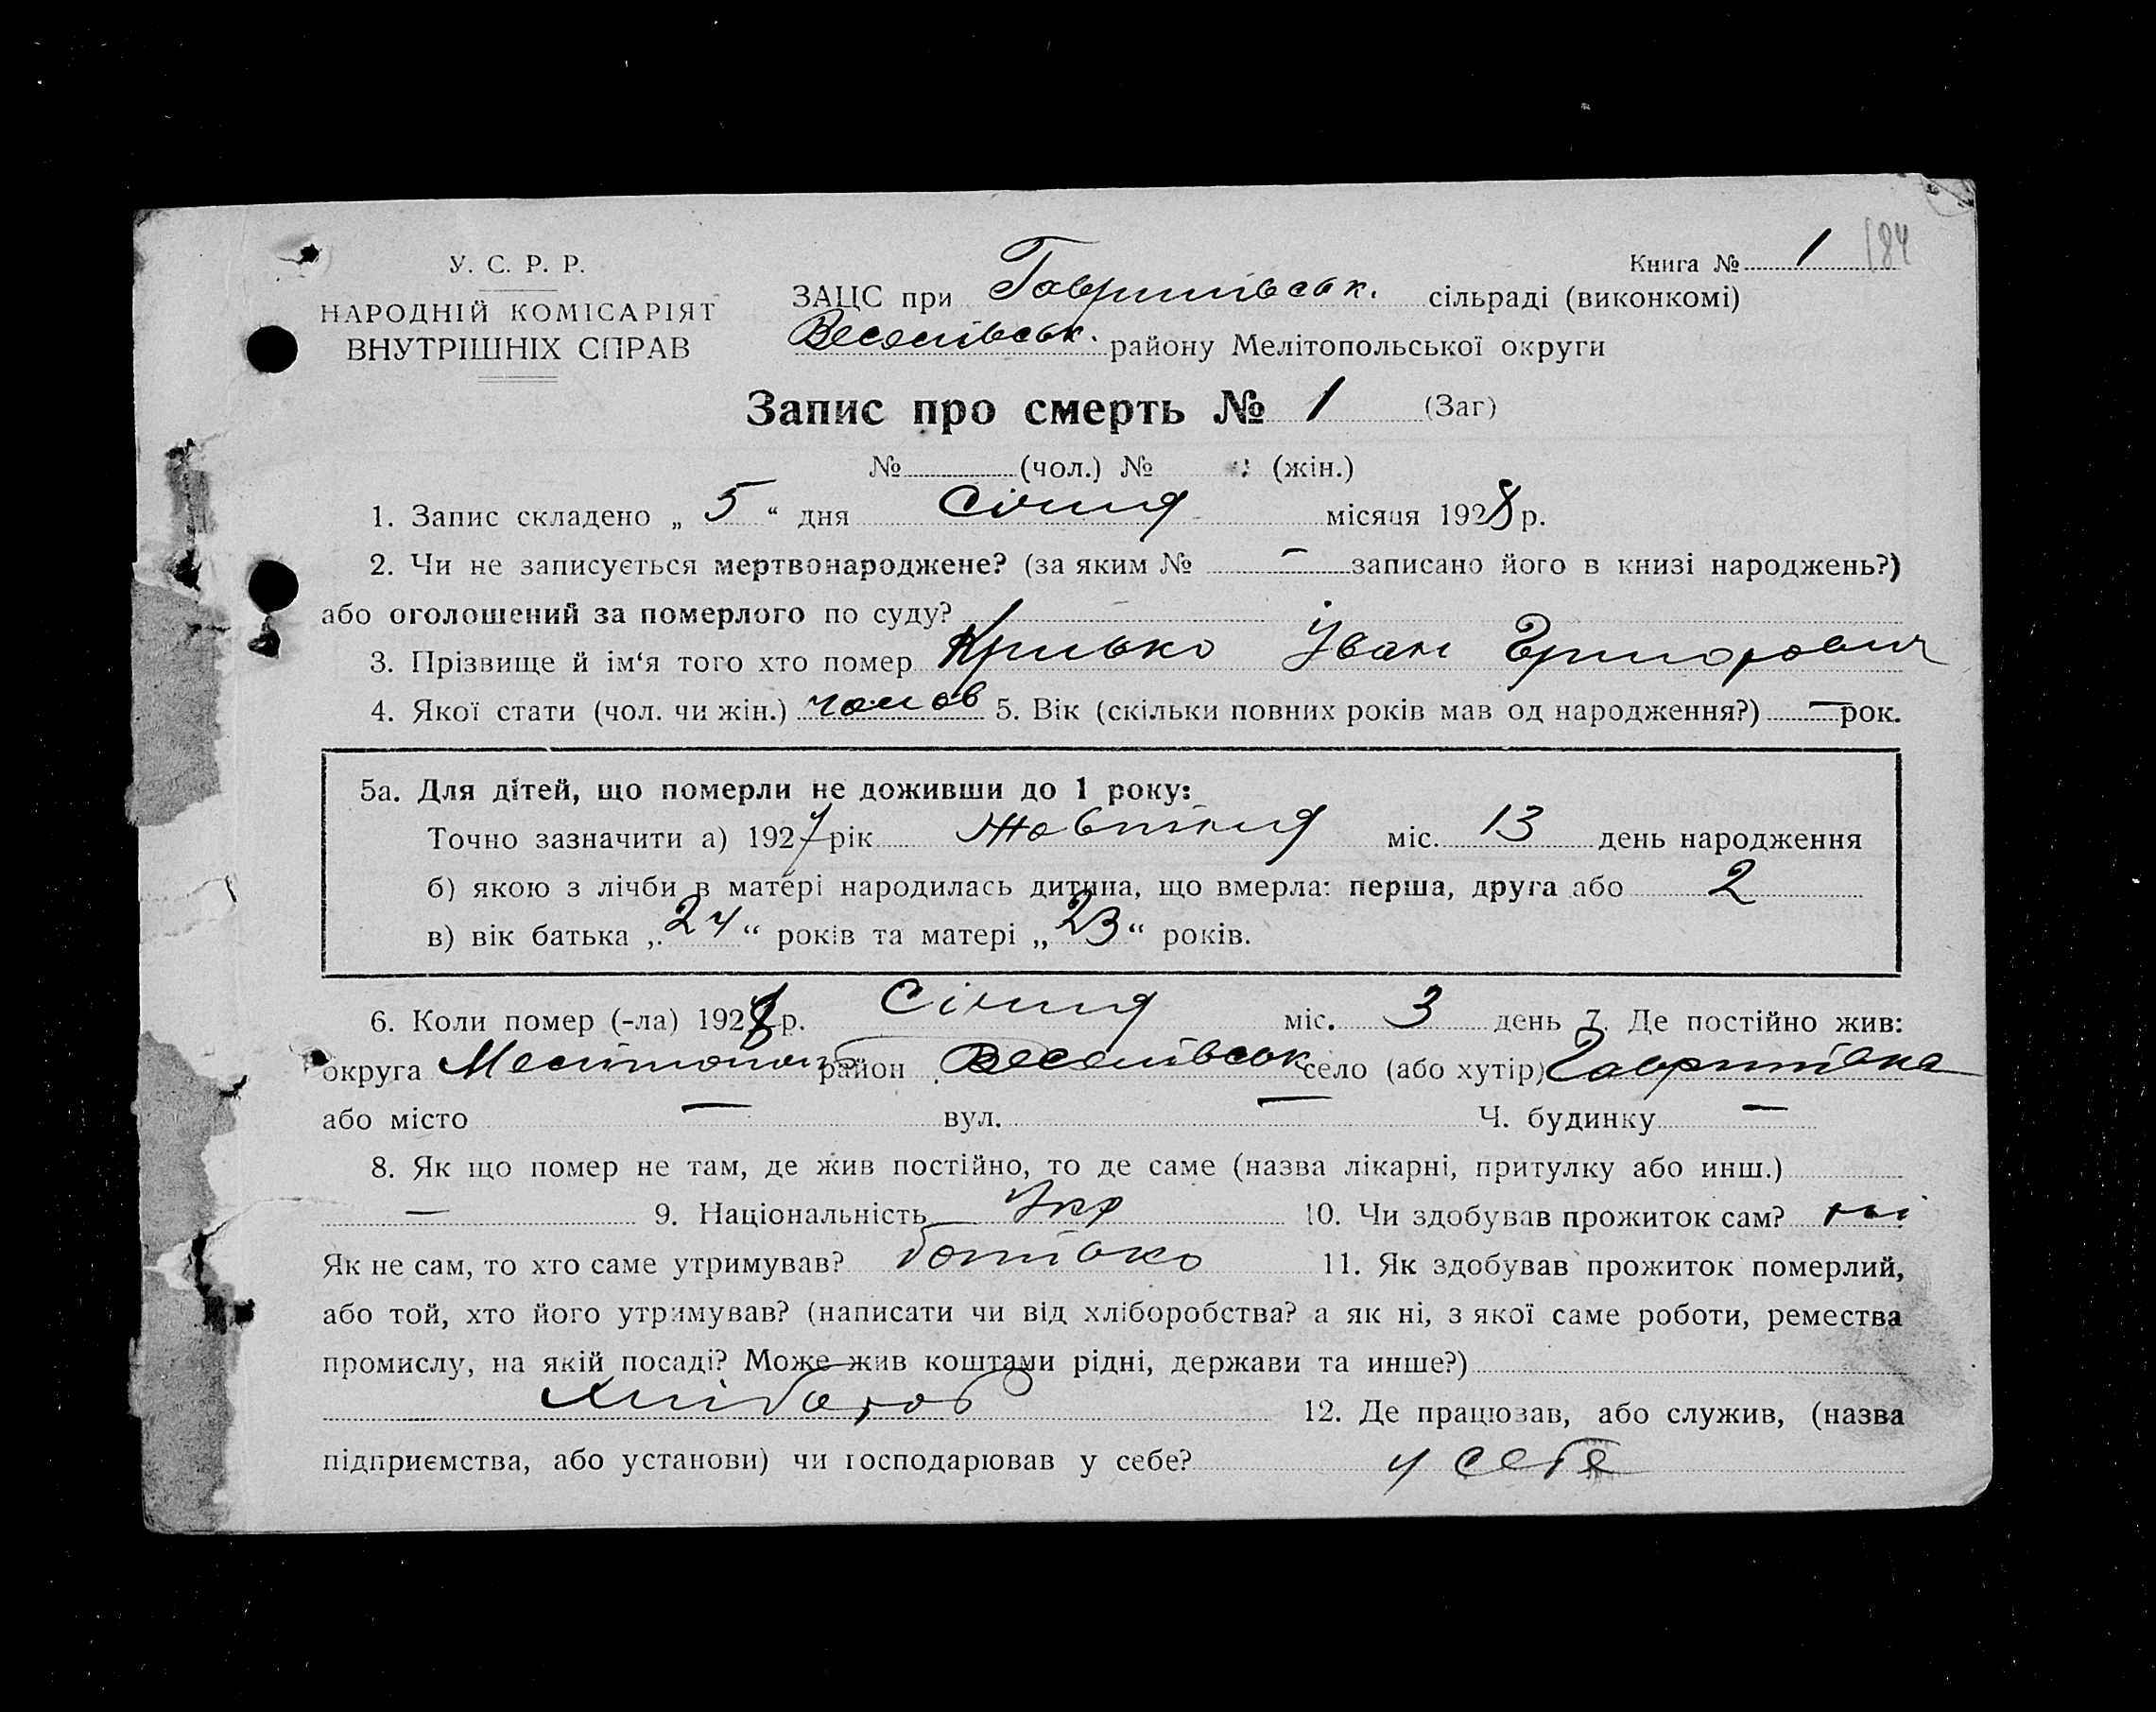 Книга № 1 184
У. С. Р. Р.
НАРОДНІЙ КОМІСАРІЯТ
ВНУТРІШНІХ СПРАВ
ЗАЦС при Гаврилівськ. сільраді (виконкомі)
Веселівськ. району Мелітопольської округи
Запис про смерть № 1 (Заг)
№ (чол.) № (жін.)
1. Запис складено „ 5 “ дня Січня місяця 1928 р.
2. Чи не записується мертвонароджене? (за яким № — записано його в книзі народжень?)
або оголошений за померлого по суду?
3. Прізвище й ім‘я того хто помер Іван Григорович
4. Якої стати (чол. чи жін.) чолов 5. Вік (скільки повних років мав од народження?) — рок.
5а. Для дітей, що померли не доживши до 1 року:
Точно зазначити а) 1927 рік Жовтня міс. 13 день народження
б) якою з лічби в матері народилась дитина, що вмерла: перша, друга або 2
в) вік батька „ 24 “ років та матері „ 23 “ років.
6. Коли помер (-ла) 1928 р. Січня міс. 3 день 7. Де постійно жив:
округа Мелітополь район Веселівськ село (або хутір) Гаврилівка
або місто — вул. — Ч. будинку —
8. Як що помер не там, де жив постійно, то де саме (назва лікарні, притулку або инш.)
— 9. Національність Укр 10. Чи здобував прожиток сам? ні
Як не сам, то хто саме утримував? батько 11. Як здобував прожиток померлий,
або той, хто його утримував? (написати чи від хліборобства? а як ні, з якої саме роботи, ремества
промислу, на якій посаді? Може жив коштами рідні, держави та инше?)
хлібороб 12. Де працював, або служив, (назва
підприємства, або установи) чи господарював у себе? у себе